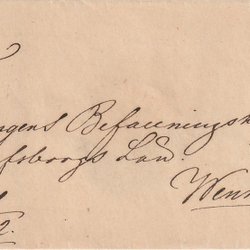 ngens Befallningsh
fsborgs Län.
Wenn